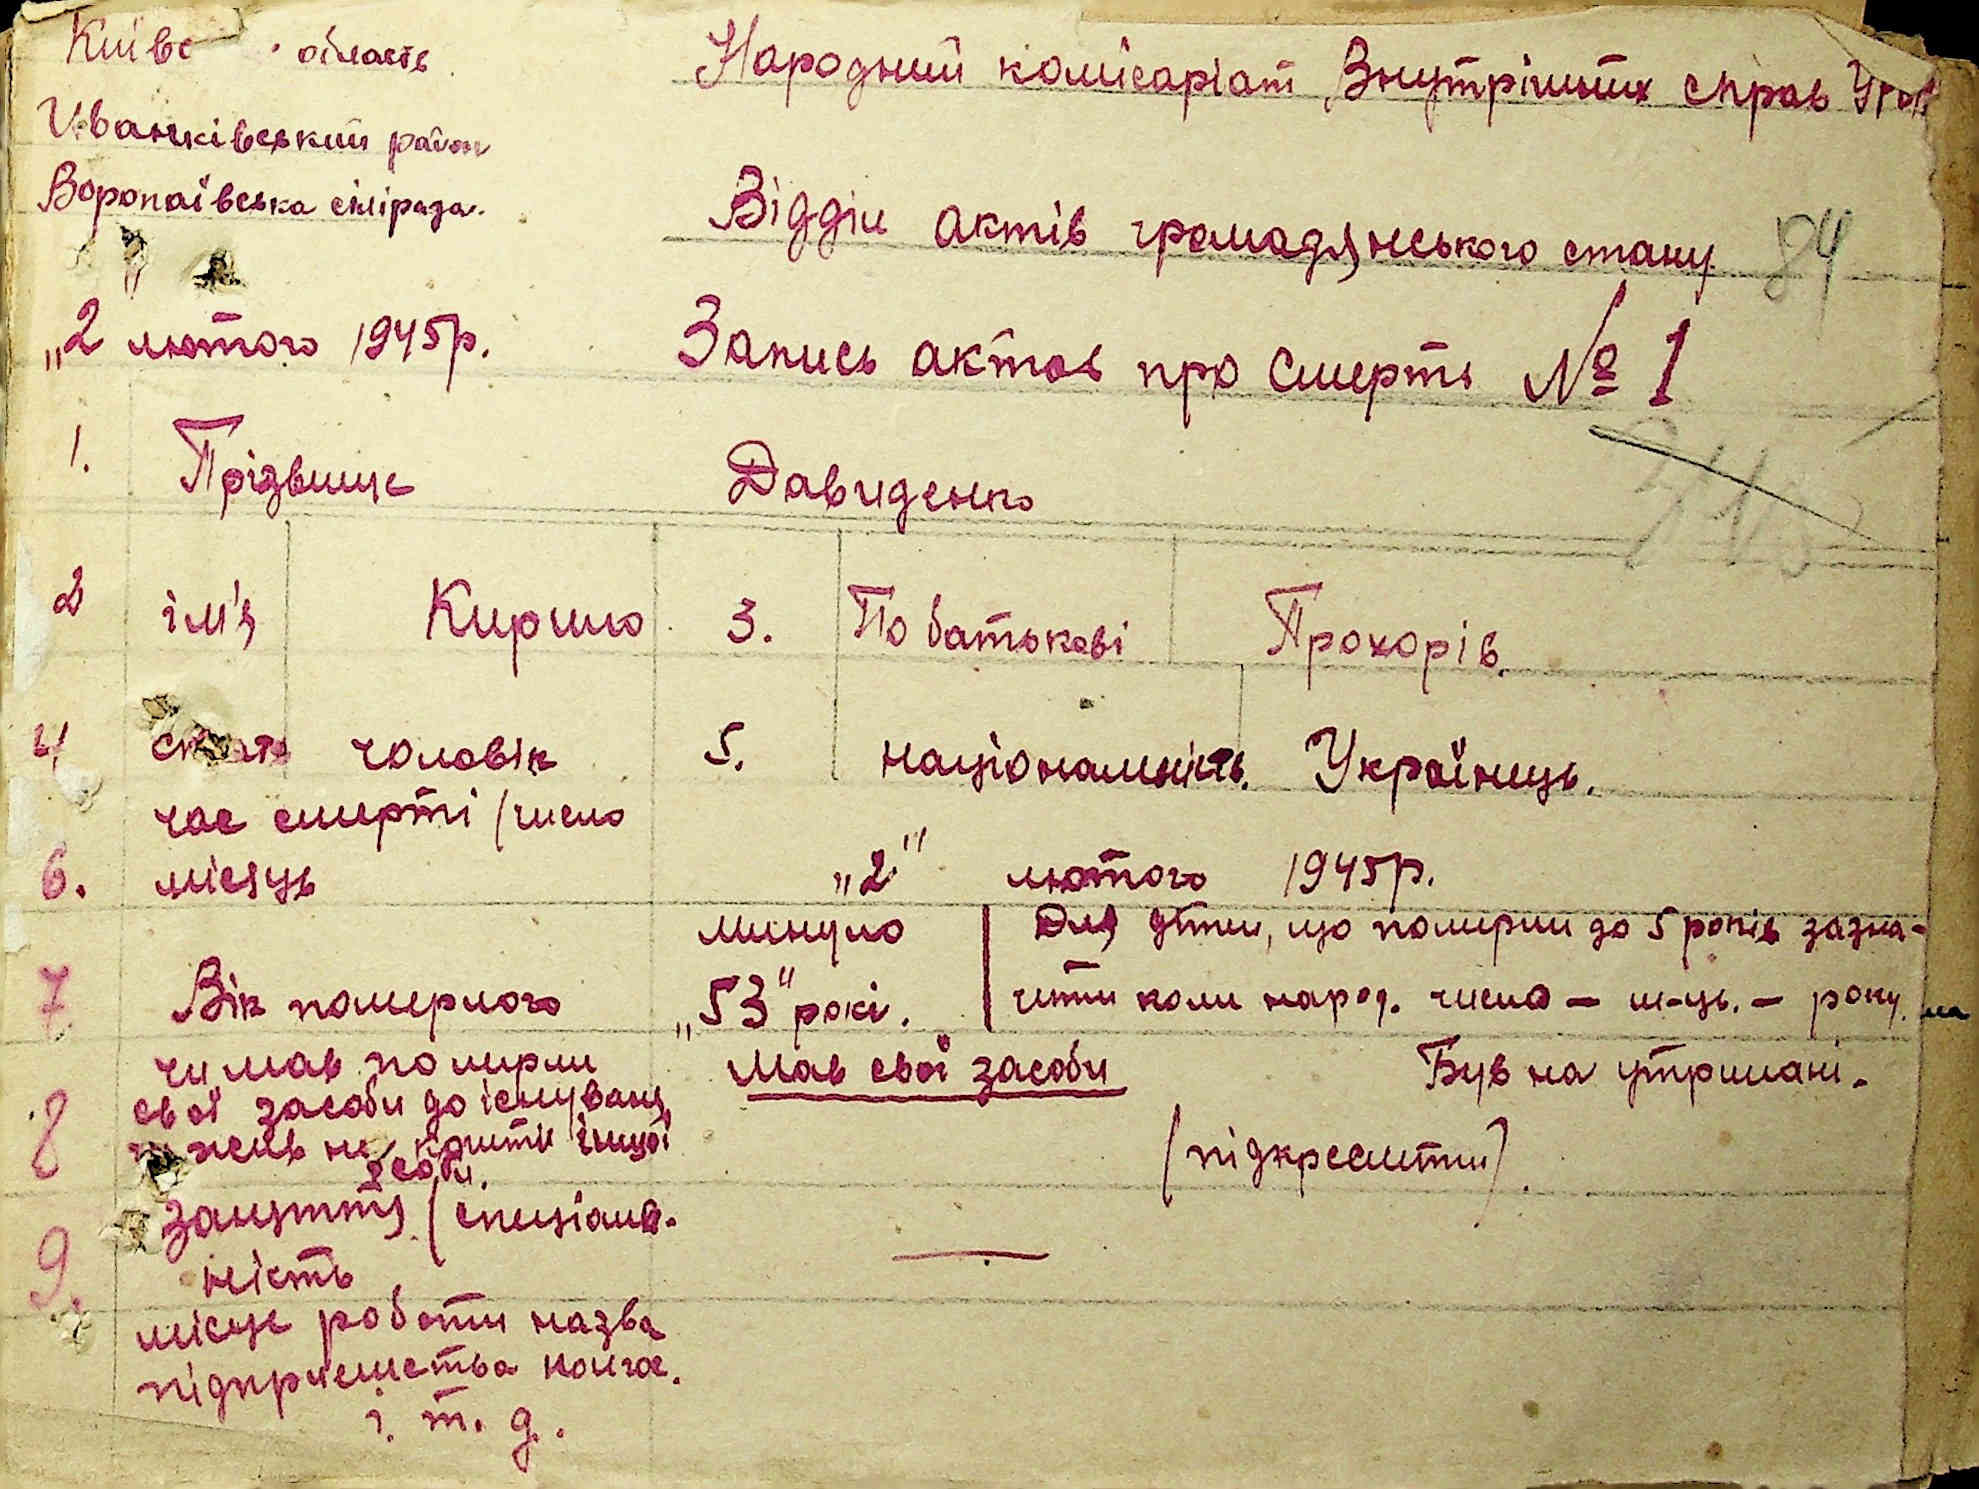 Київс область
Народний комісаріат Внутрішніх справ
Иванківський район
Воропаївська сілірада.
Відділ актів громадянського стану
84
„2 лютого 1945р.
Запись актов про смерть № 1
1. Прізвище Давиденко
2 ім'я Кирило 3. По батькові Прохорів.
4 стать чоловік 5. національність. Українець.
6. час смерті (число
місяць „2" лютого 1945р.
7. Вік померлого минуло „53" рокі.
Для дітей, що померли до 5 років зазна-
чити коли народ. число – м-ць. – року.
8 чи мав померли
свої засоби до існування
жив на кошти іншої
особи.
Мав свої засоби Був на утримані.
(підкреслити).
9. Заняття (спеціаль-
ність —
місце роботи назва
підприємства колгос.
і. т. д.